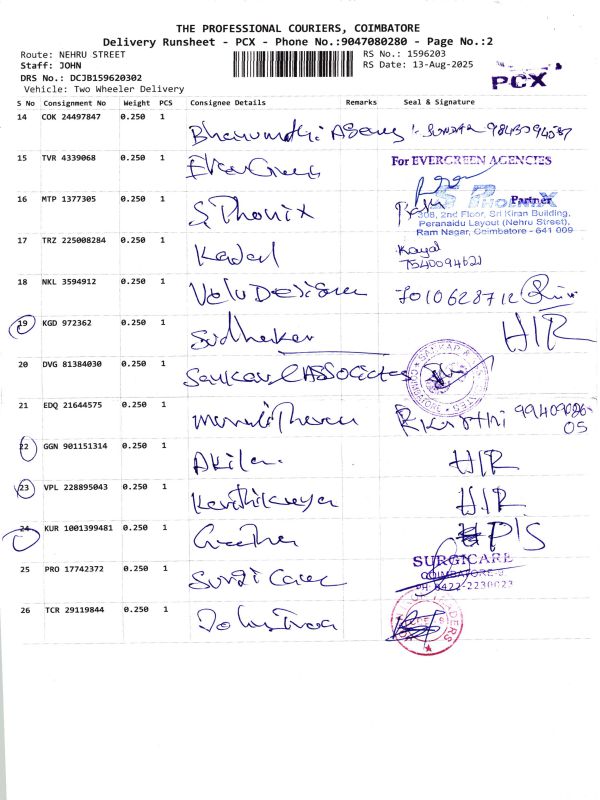 THE PROFESSIONAL COURIERS, COIMBATORE
Delivery Runsheet - PCX - Phone No.:9047080280 - Page No.:2
Route: NEHRU STREET RS No.: 1596203
Staff: JOHN RS Date: 13-Aug-2025
DRS No.: DCJB159620302
Vehicle: Two Wheeler Delivery
PCX
S No Consignment No Weight PCS Consignee Details Remarks Seal & Signature
14 COK 24497847 0.250 1
15 TVR 4339068 0.250 1 For EVERGREEN AGENCIES
Partner
16 MTP 1377305 0.250 1 S Phonix S PHOENIX
308, 2nd Floor, Sri Kiran Building,
Peranaidu Layout (Nehru Street),
Ram Nagar, Coimbatore - 641 009
17 TRZ 225008284 0.250 1 Kayal
7540094621
18 NKL 3594912 0.250 1 7010628712
19 KGD 972362 0.250 1 Sudhakar H/R
20 DVG 81384030 0.250 1 Sankar & Associates
21 EDQ 21644575 0.250 1
22 GGN 901151314 0.250 1 Akila H/R
23 VPL 228895043 0.250 1 Karthikeyan H/R
24 KUR 1001399481 0.250 1 Geetha P/S
25 PRO 17742372 0.250 1 Surgi Care SURGICARE
COIMBATORE-9
PH 0422-2230023
26 TCR 29119844 0.250 1